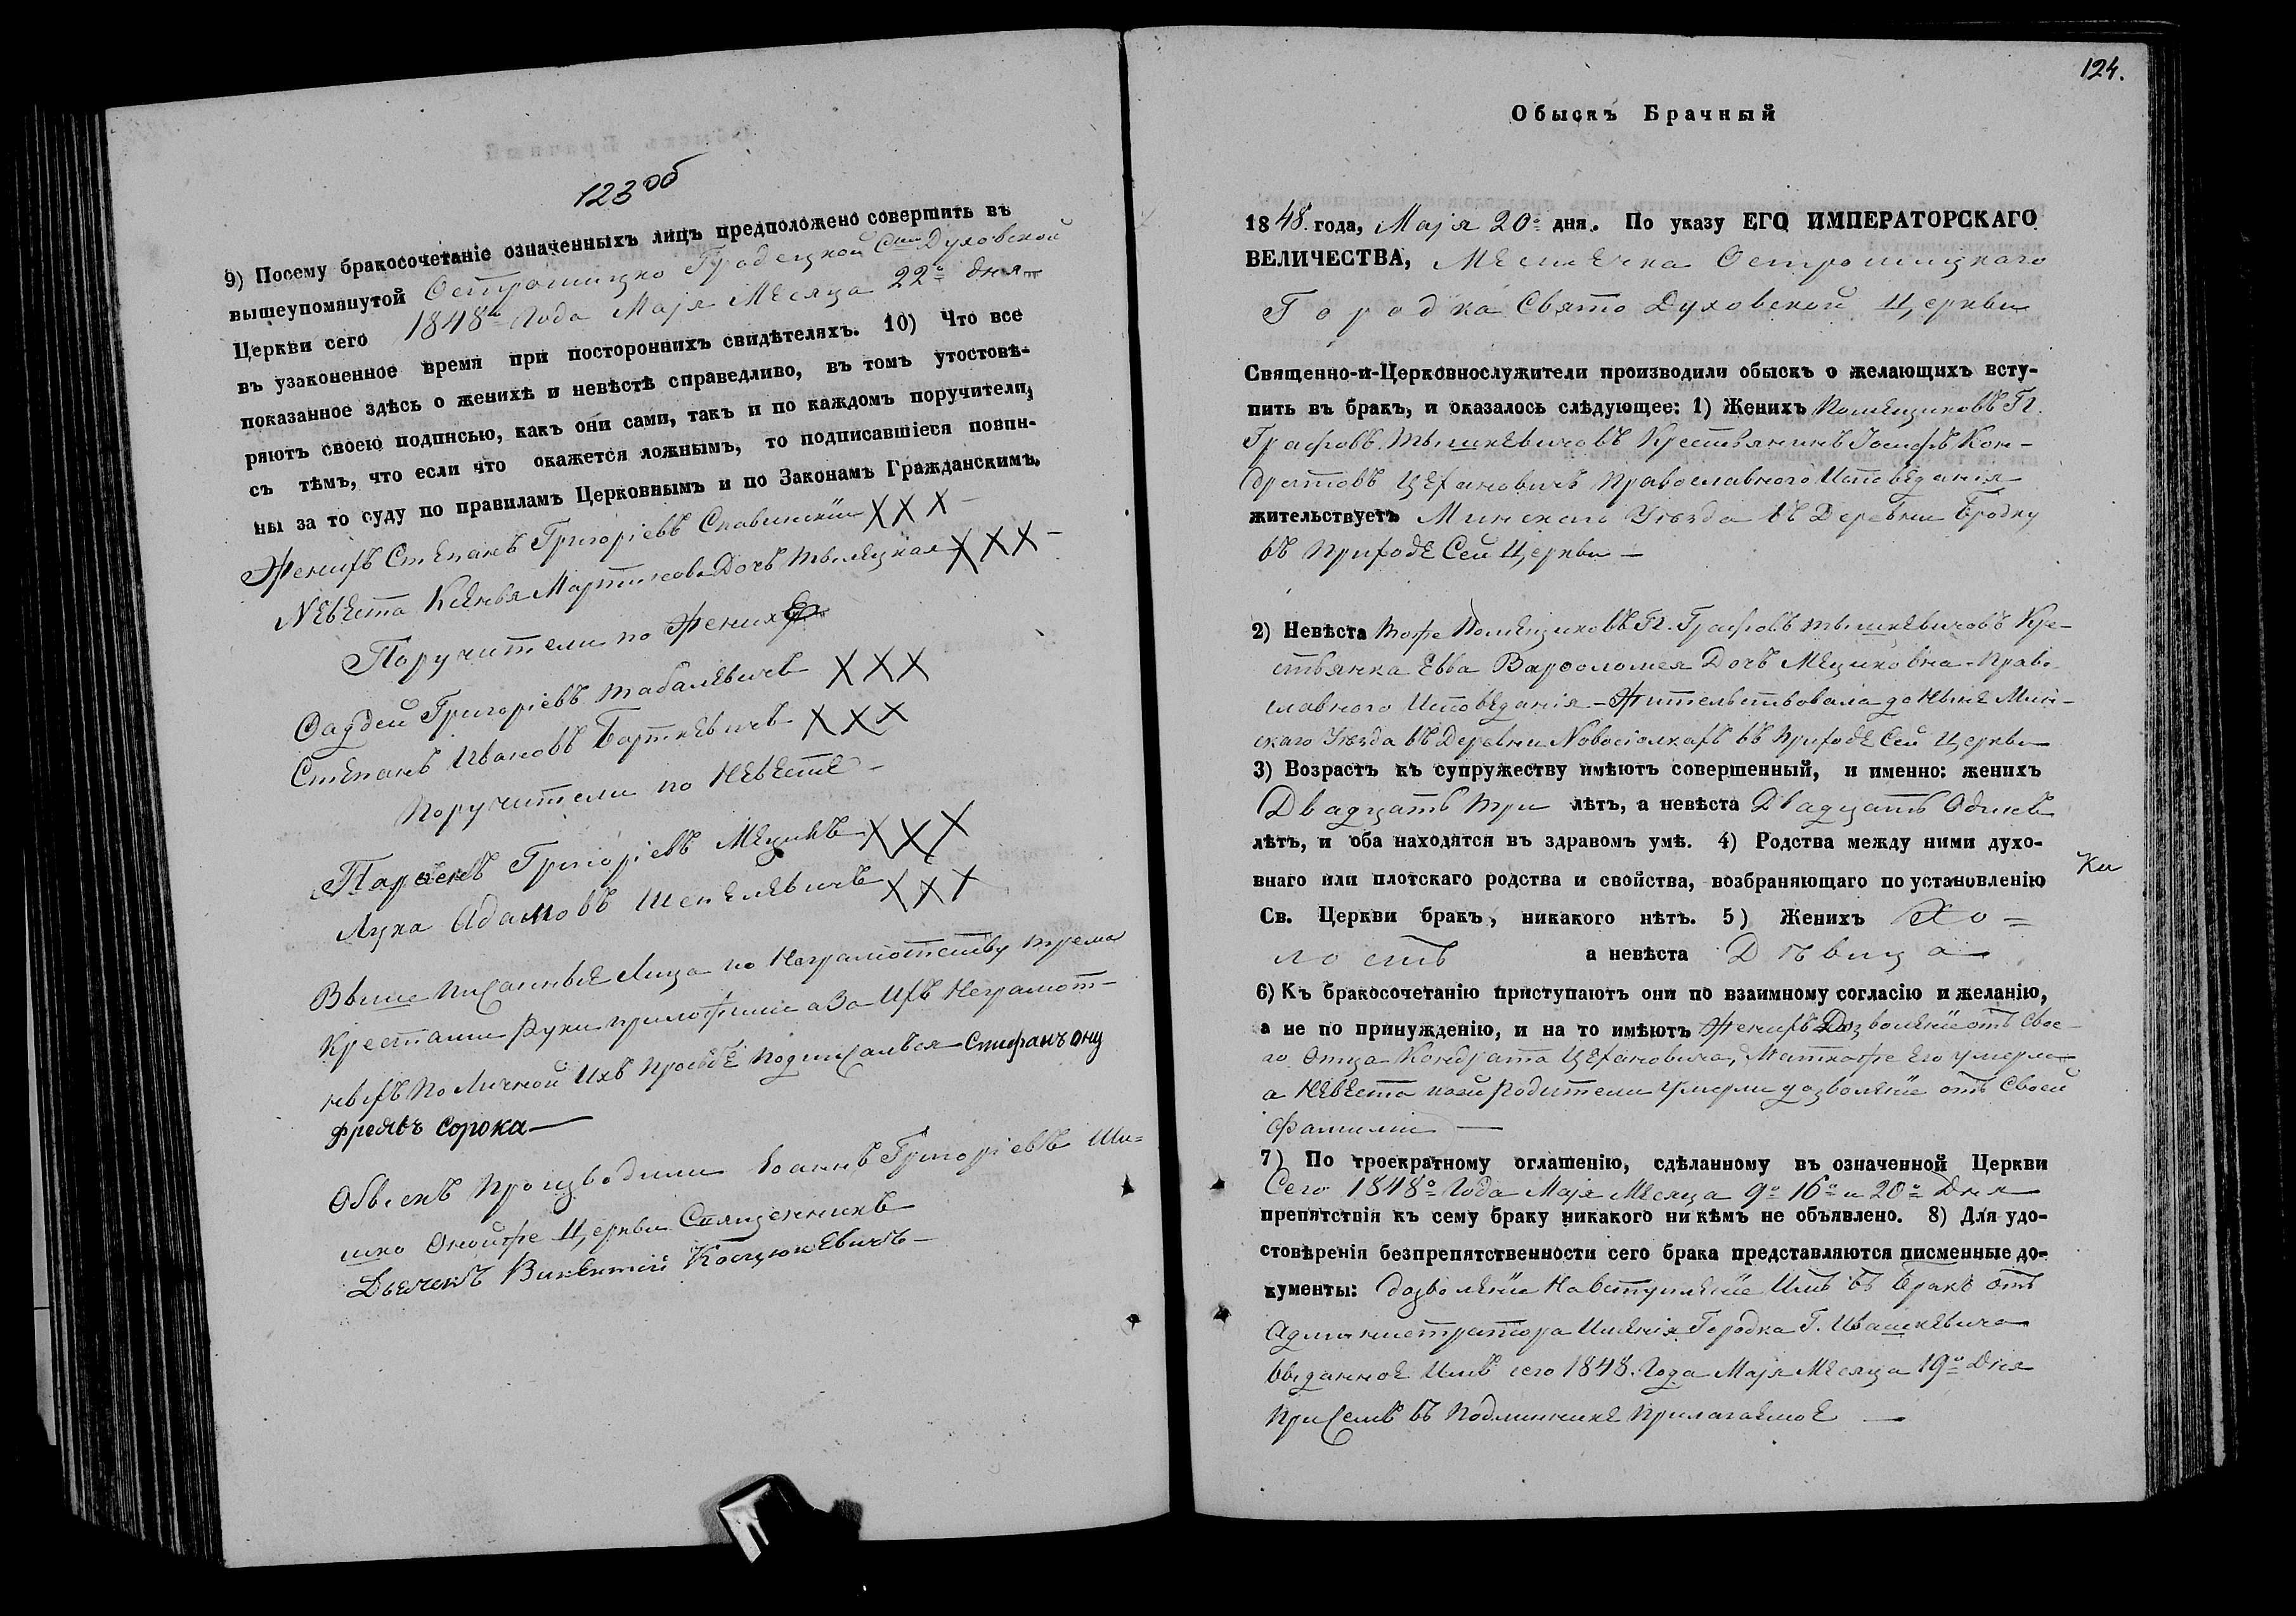 123 об
9) Посему бракосочетаніе означенныхъ лицъ предположено совершить въ
вышеупомянутой Острошицко Градецкой Свто Духовской
Церкви сего 1848го Года Маія Месяца 22о дня
въ узаконенное время при постороннихъ свидѣтеляхъ. 10) Что все
показанное здѣсь о женихѣ и невѣстѣ справедливо, въ томъ утостовѣ-
ряютъ своею подписью, какъ они сами, такъ и по каждомъ поручители,
съ тѣмъ, что если что окажется ложнымъ, то подписавшіеся повин-
ны за то суду по правиламъ Церковнымъ и по Законамъ Гражданскимъ.
Женихъ Степанъ Григоріевъ Славинскій XXX
Невеста Ксенья Мартинова Дочъ XXX
Поручители по Женихе
Фаддей Григоріевъ Табалевичъ XXX
Степанъ Ивановъ Барткевичъ XXX
Поручители по Невесте
Парфенъ Григоріевъ Мецикъ XXX
Лука Адамовъ Шепелевичъ XXX
Выше писанные Лица по Награмотству трема
Крестами Руки приложили а За Ихъ Неграмот-
ныхъ По Личной Ихъ Прозбе Подписался Стефанъ Ону
фреявъ Сорока
Обыскъ Производили Іоаннъ Григоріевъ Ши-
шко Онойже Церкви Священникъ
Дьячокъ Викентій Косцюкевичъ
124.
Обыскъ Брачный
1848. года, Маія 20о дня. По указу ЕГО ИМПЕРАТОРСКАГО
ВЕЛИЧЕСТВА, Местечка Острошицкаго
Городка Свято Духовской Церкви
Священно-и-Церковнослужители производили обыскъ о желающихъ всту-
пить въ бракъ, и оказалось слѣдующее: 1) Женихъ Помещиковъ ГГ.
Графовъ Тышкевичовъ Крестьянинъ Іосифъ Кон-
дратовъ Цеханович Православного Исповеданія
жительствуетъ Минскаго Уезда въ Деревни Бродку
въ Приходе Сей Церкви
2) Невѣста Тоже Помещиковъ ГГ. Графовъ Тышкевичовъ Кре-
стьянка Евва Варфоломея Дочъ Мециковна Право-
славного Исповеданія Жительствовала до Ныне Мин-
скаго Уезда въ Деревни Новосіолкахъ въ Приходе Сей Церкви
3) Возрастъ къ супружеству имѣютъ совершенный, и именно: женихъ
Двадцать три лѣтъ, а невѣста Двадцать Одинъ
лѣтъ, и оба находятся въ здравомъ умѣ. 4) Родства между ними духо-
внаго или плотскаго родства и свойства, возбраняющаго по установленію
Св. Церкви бракъ, никакого нѣтъ. 5) Женихъ Хо-
лостъ а невѣста Дѣвица
6) Къ бракосочетанію приступаютъ они по взаимному согласію и желанію,
а не по принужденію, и на то имѣютъ Женихъ Дозволеніе отъ Свое
го Отца Кондрата Цехановича, Матка же Его умерла
а Невеста коей Родители Умерли дозволеніе отъ Своей
Фамиліи
7) По троекратному оглашенію, сдѣланному въ означенной Церкви
Сего 1848о Года Маія Месяца 9о 16о и 20о Дня
препятствія къ сему браку никакого ни кѣмъ не объявлено. 8) Для удо-
стовѣренія безпрепятственности сего брака представляются писменные до-
кументы: дозволеніе На вступленіе Имъ въ Бракъ отъ
Администратора Именія Городка Г. Ивашкевича
выданное Имъ сего 1848. Года Маія Месяца 19о Дня
При Семъ въ Подлиннике Прилагаемое